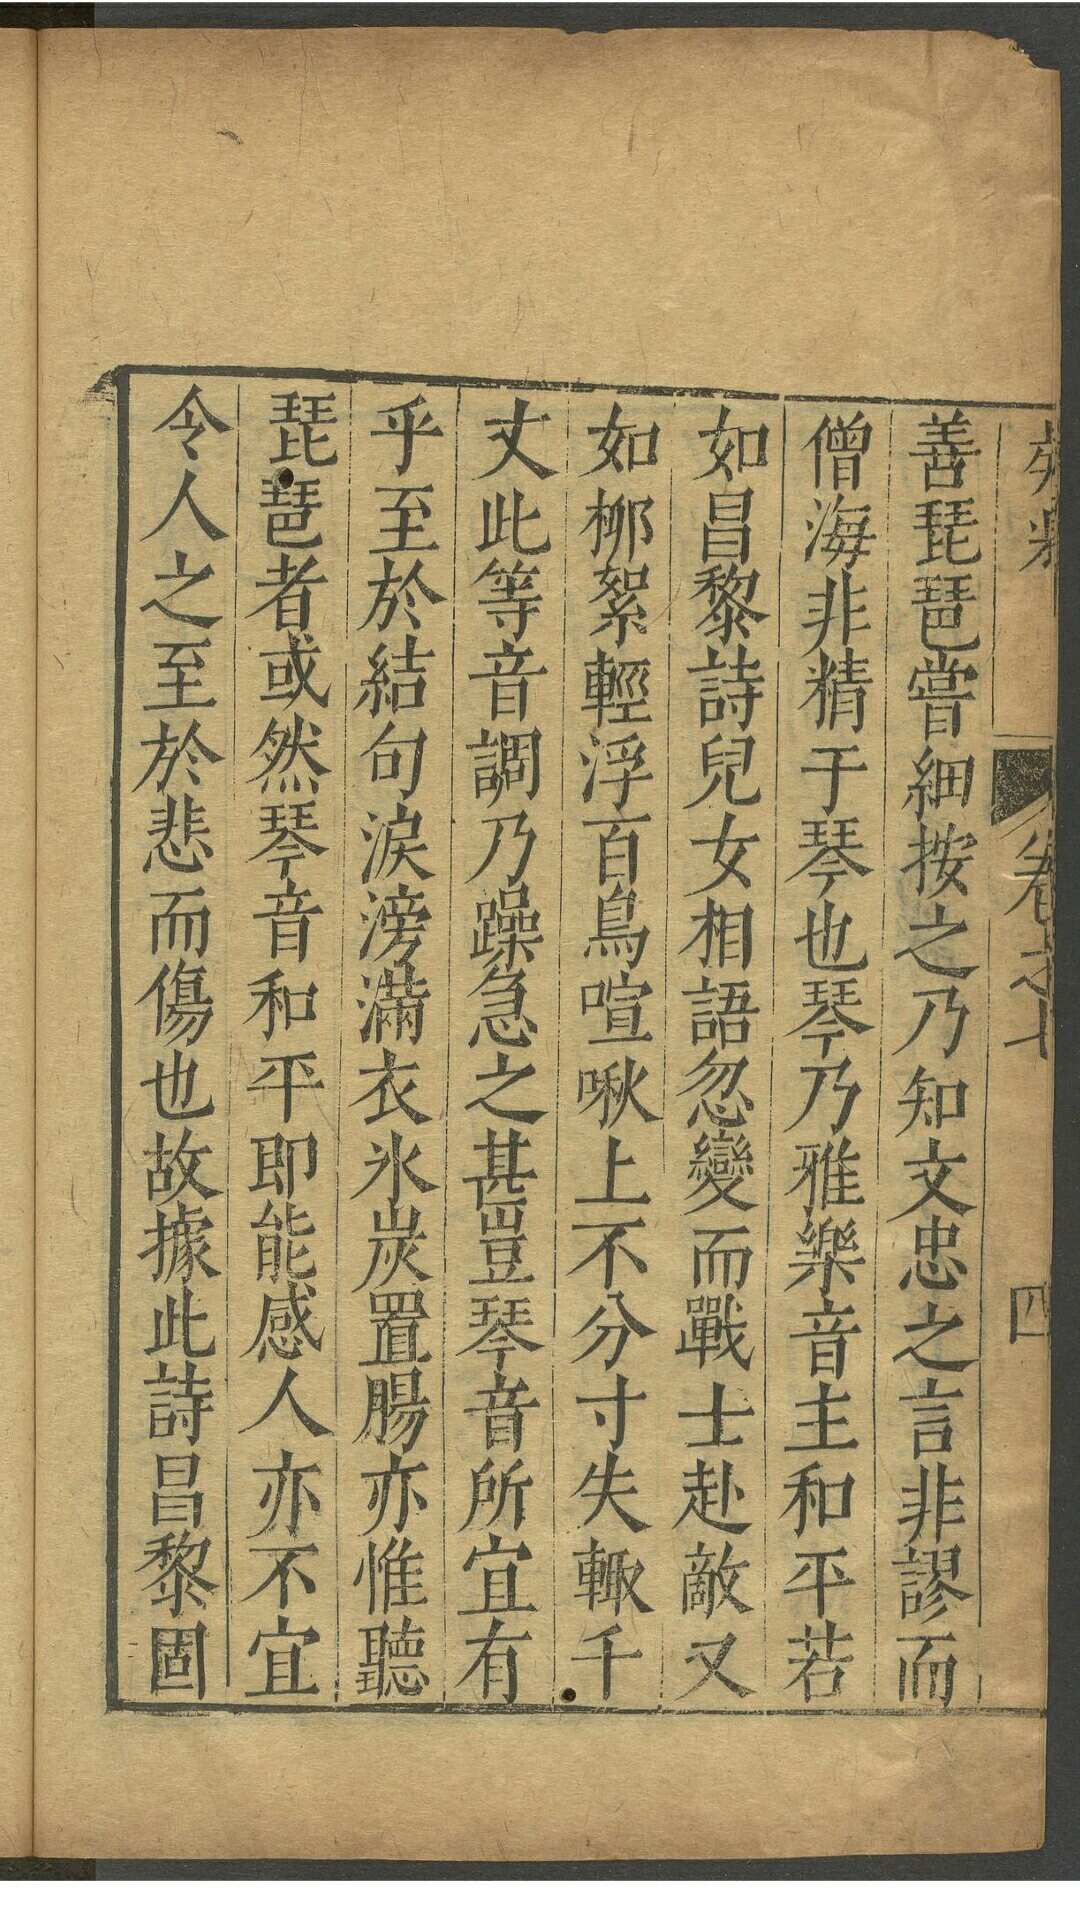 卷之七
四
善琵琶嘗細按之乃知文忠之言非謬而
僧海非精于琴也琴乃雅樂音主和平若
如昌黎詩兒女相語忽變而戰士赴敵又
如柳絮輕浮百鳥喧啾上不分寸失輙千
丈此等音調乃躁急之甚豈琴音所宜有
乎至於結句淚滂滿衣氷炭置腸亦惟聽
琵琶者或然琴音和平即能感人亦不宜
令人之至於悲而傷也故據此詩昌黎固